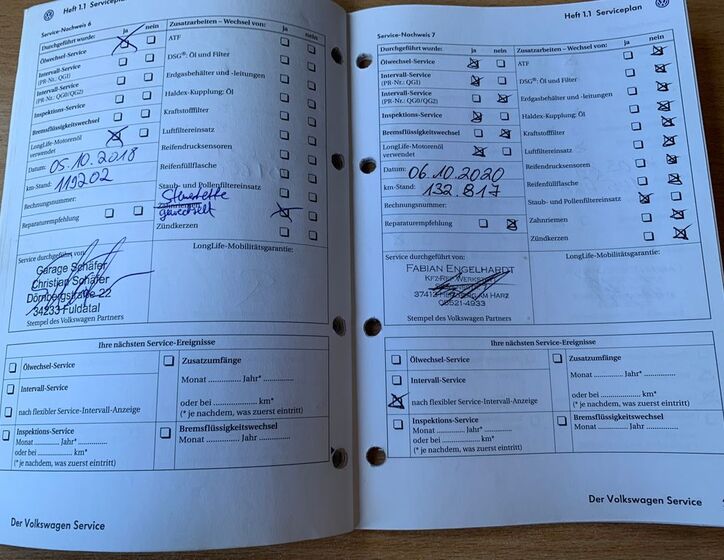 Heft 1.1 Serviceplan
Service-Nachweis 6
Durchgeführt wurde: ja nein
Ölwechsel-Service
Intervall-Service
(PR-Nr.: QG1)
Intervall-Service
(PR-Nr.: QG0/QG2)
Inspektions-Service
Bremsflüssigkeitswechsel
LongLife-Motorenöl
verwendet
Datum: 05.10.2018
km-Stand: 119202
Rechnungsnummer:
Reparaturempfehlung
Zusatzarbeiten – Wechsel von: ja nein
ATF
DSG®: Öl und Filter
Erdgasbehälter und -leitungen
Haldex-Kupplung: Öl
Kraftstofffilter
Luftfiltereinsatz
Reifendrucksensoren
Reifenfüllflasche
Staub- und Pollenfiltereinsatz
Steuerkette
Zahnriemen
gewechselt
Zündkerzen
Service durchgeführt von:
Garage Schäfer
Christian Schäfer
Dörnbergstraße 22
34233 Fuldatal
Stempel des Volkswagen Partners
LongLife-Mobilitätsgarantie:
Ihre nächsten Service-Ereignisse
Ölwechsel-Service
Intervall-Service
nach flexibler Service-Intervall-Anzeige
Inspektions-Service
Monat .............. Jahr* ..............
oder bei .............. km*
(* je nachdem, was zuerst eintritt)
Zusatzumfänge
Monat .............. Jahr* ..............
oder bei .............. km*
(* je nachdem, was zuerst eintritt)
Bremsflüssigkeitswechsel
Monat .............. Jahr ..............
Der Volkswagen Service
Heft 1.1 Serviceplan
Service-Nachweis 7
Durchgeführt wurde: ja nein
Ölwechsel-Service
Intervall-Service
(PR-Nr.: QG1)
Intervall-Service
(PR-Nr.: QG0/QG2)
Inspektions-Service
Bremsflüssigkeitswechsel
LongLife-Motorenöl
verwendet
Datum: 06.10.2020
km-Stand: 132.817
Rechnungsnummer:
Reparaturempfehlung
Zusatzarbeiten – Wechsel von: ja nein
ATF
DSG®: Öl und Filter
Erdgasbehälter und -leitungen
Haldex-Kupplung: Öl
Kraftstofffilter
Luftfiltereinsatz
Reifendrucksensoren
Reifenfüllflasche
Staub- und Pollenfiltereinsatz
Zahnriemen
Zündkerzen
Service durchgeführt von:
FABIAN ENGELHARDT
KFZ-REP.WERKSTATT
37412 AM HARZ
05521-4933
Stempel des Volkswagen Partners
LongLife-Mobilitätsgarantie:
Ihre nächsten Service-Ereignisse
Ölwechsel-Service
Intervall-Service
nach flexibler Service-Intervall-Anzeige
Inspektions-Service
Monat .............. Jahr* ..............
oder bei .............. km*
(* je nachdem, was zuerst eintritt)
Zusatzumfänge
Monat .............. Jahr* ..............
oder bei .............. km*
(* je nachdem, was zuerst eintritt)
Bremsflüssigkeitswechsel
Monat .............. Jahr ..............
Der Volkswagen Service